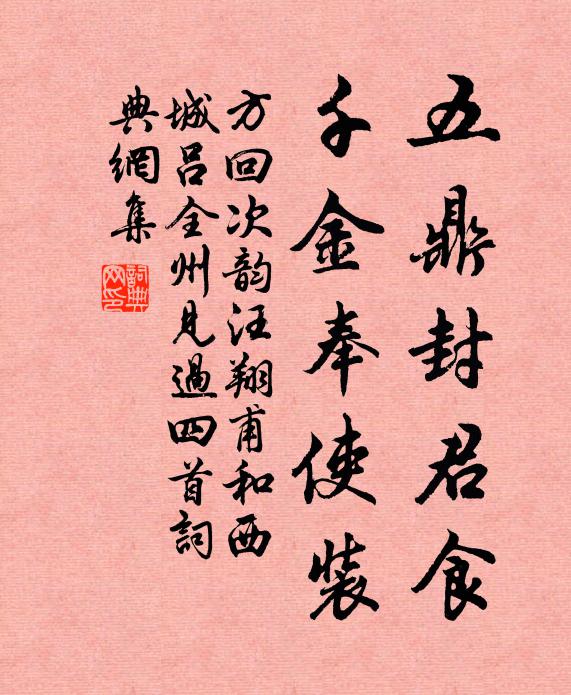 五鼎封君食
千金奉使裝
方回次韵汪翔甫和西
城吕全州見過四首詞
典網集
詞典网印